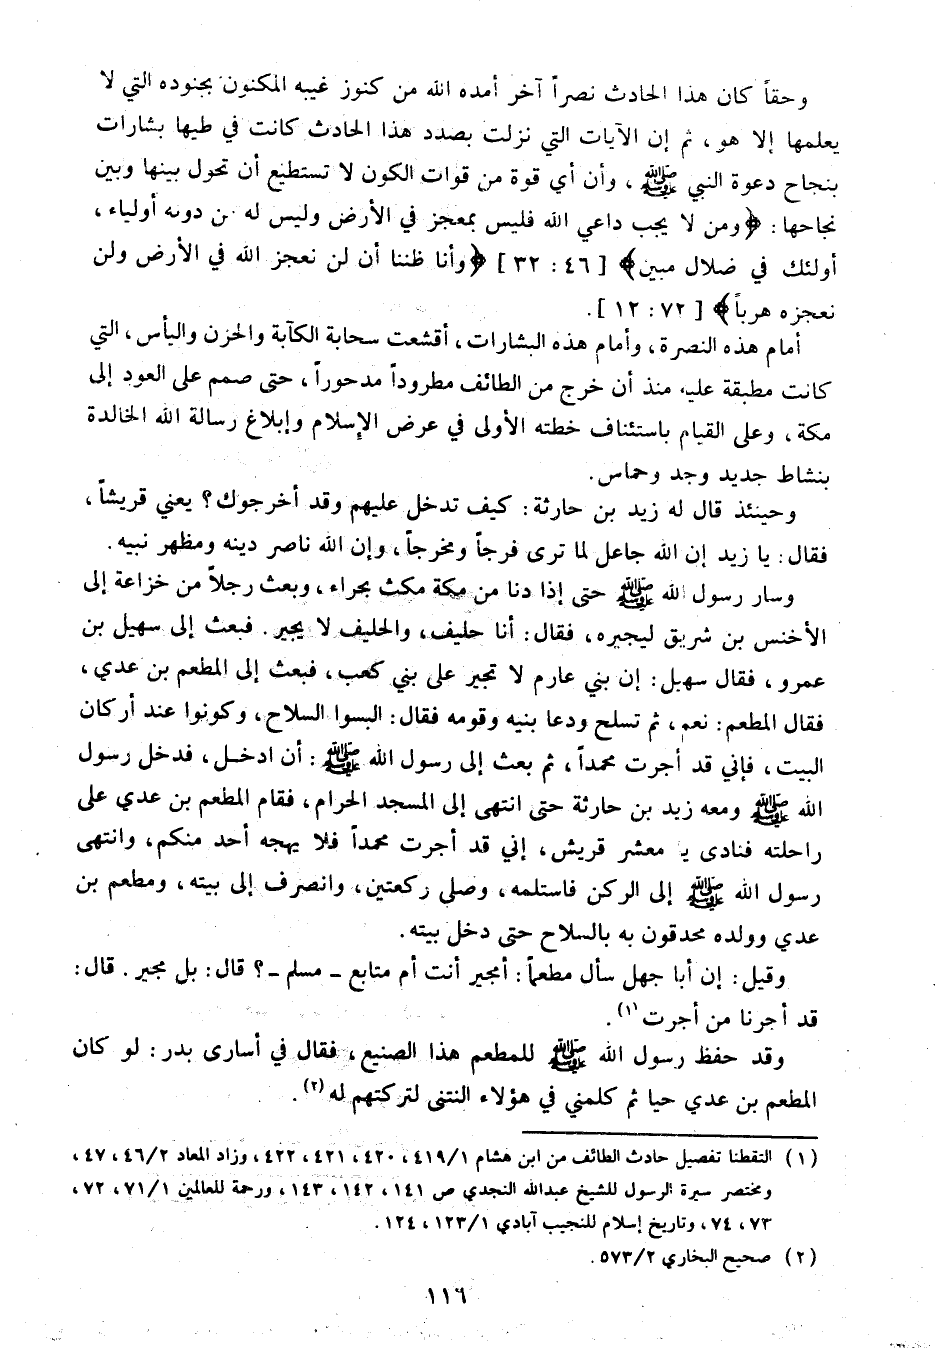 وحقاً كان هذا الحادث نصراً آخر أمده الله من كنوز غيبه المكنون بجنوده التي لا
يعلمها إلا هو ، ثم إن الآيات التي نزلت بصدد هذا الحادث كانت في طيها بشارات
بنجاح دعوة النبي ﷺ ، وأن أي قوة من قوات الكون لا تستطيع أن تحول بينها وبين
نجاحها : ﴿ومن لا يجب داعي الله فليس بمعجز في الأرض وليس له من دونه أولياء ،
أولئك في ضلال مبين﴾ [ ٤٦ : ٣٢ ] ﴿وأنا ظننا أن لن نعجز الله في الأرض ولن
نعجزه هرباً﴾ [ ٧٢ : ١٢ ] .
أمام هذه النصرة ، وأمام هذه البشارات ، أقشعت سحابة الكآبة والحزن واليأس ، التي
كانت مطبقة عليه منذ أن خرج من الطائف مطروداً مدحوراً ، حتى صمم على العود إلى
مكة ، وعلى القيام باستئناف خطته الأولى في عرض الإسلام وإبلاغ رسالة الله الخالدة
بنشاط جديد وجد وحماس .
وحينئذ قال له زيد بن حارثة : كيف تدخل عليهم وقد أخرجوك ؟ يعني قريشاً ،
فقال : يا زيد إن الله جاعل لما ترى فرجاً ومخرجاً ، وإن الله ناصر دينه ومظهر نبيه .
وسار رسول الله ﷺ حتى إذا دنا من مكة مكث بحراء ، وبعث رجلاً من خزاعة إلى
الأخنس بن شريق ليجيره ، فقال : أنا حليف ، والحليف لا يجير . فبعث إلى سهيل بن
عمرو ، فقال سهيل : إن بني عارم لا تجير على بني كعب ، فبعث إلى المطعم بن عدي ،
فقال المطعم : نعم ، ثم تسلح ودعا بنيه وقومه فقال : البسوا السلاح ، وكونوا عند أركان
البيت ، فإني قد أجرت محمداً ، ثم بعث إلى رسول الله ﷺ : أن ادخـل ، فدخل رسول
الله ﷺ ومعه زيد بن حارثة حتى انتهى إلى المسجد الحرام ، فقام المطعم بن عدي على
راحلته فنادى يا معشر قريش ، إني قد أجرت محمداً فلا يهجه أحد منكم ، وانتهى
رسول الله ﷺ إلى الركن فاستلمه ، وصلى ركعتين ، وانصرف إلى بيته ، ومطعم بن
عدي وولده محدقون به بالسلاح حتى دخل بيته .
وقيل : إن أبا جهل سأل مطعماً : أمجير أنت أم متابع ـ مسلم ـ ؟ قال : بل مجير . قال :
قد أجرنا من أجرت (١) .
وقد حفظ رسول الله ﷺ للمطعم هذا الصنيع ، فقال في أسارى بدر : لو كان
المطعم بن عدي حيا ثم كلمني في هؤلاء النتنى لتركتهم له (٢) .
(١) التقطنا تفصيل حادث الطائف من ابن هشام ٤١٩/١ ، ٤٢٠ ، ٤٢١ ، ٤٢٢ ، وزاد المعاد ٤٦/٢ ، ٤٧ ،
ومختصر سيرة الرسول للشيخ عبدالله النجدي ص ١٤١ ، ١٤٢ ، ١٤٣ ، ورحمة للعالمين ٧١/١ ، ٧٢ ،
٧٣ ، ٧٤ ، وتاريخ إسلام للنجيب آبادي ١٢٣/١ ، ١٢٤ .
(٢) صحيح البخاري ٥٧٣/٢ .
١١٦